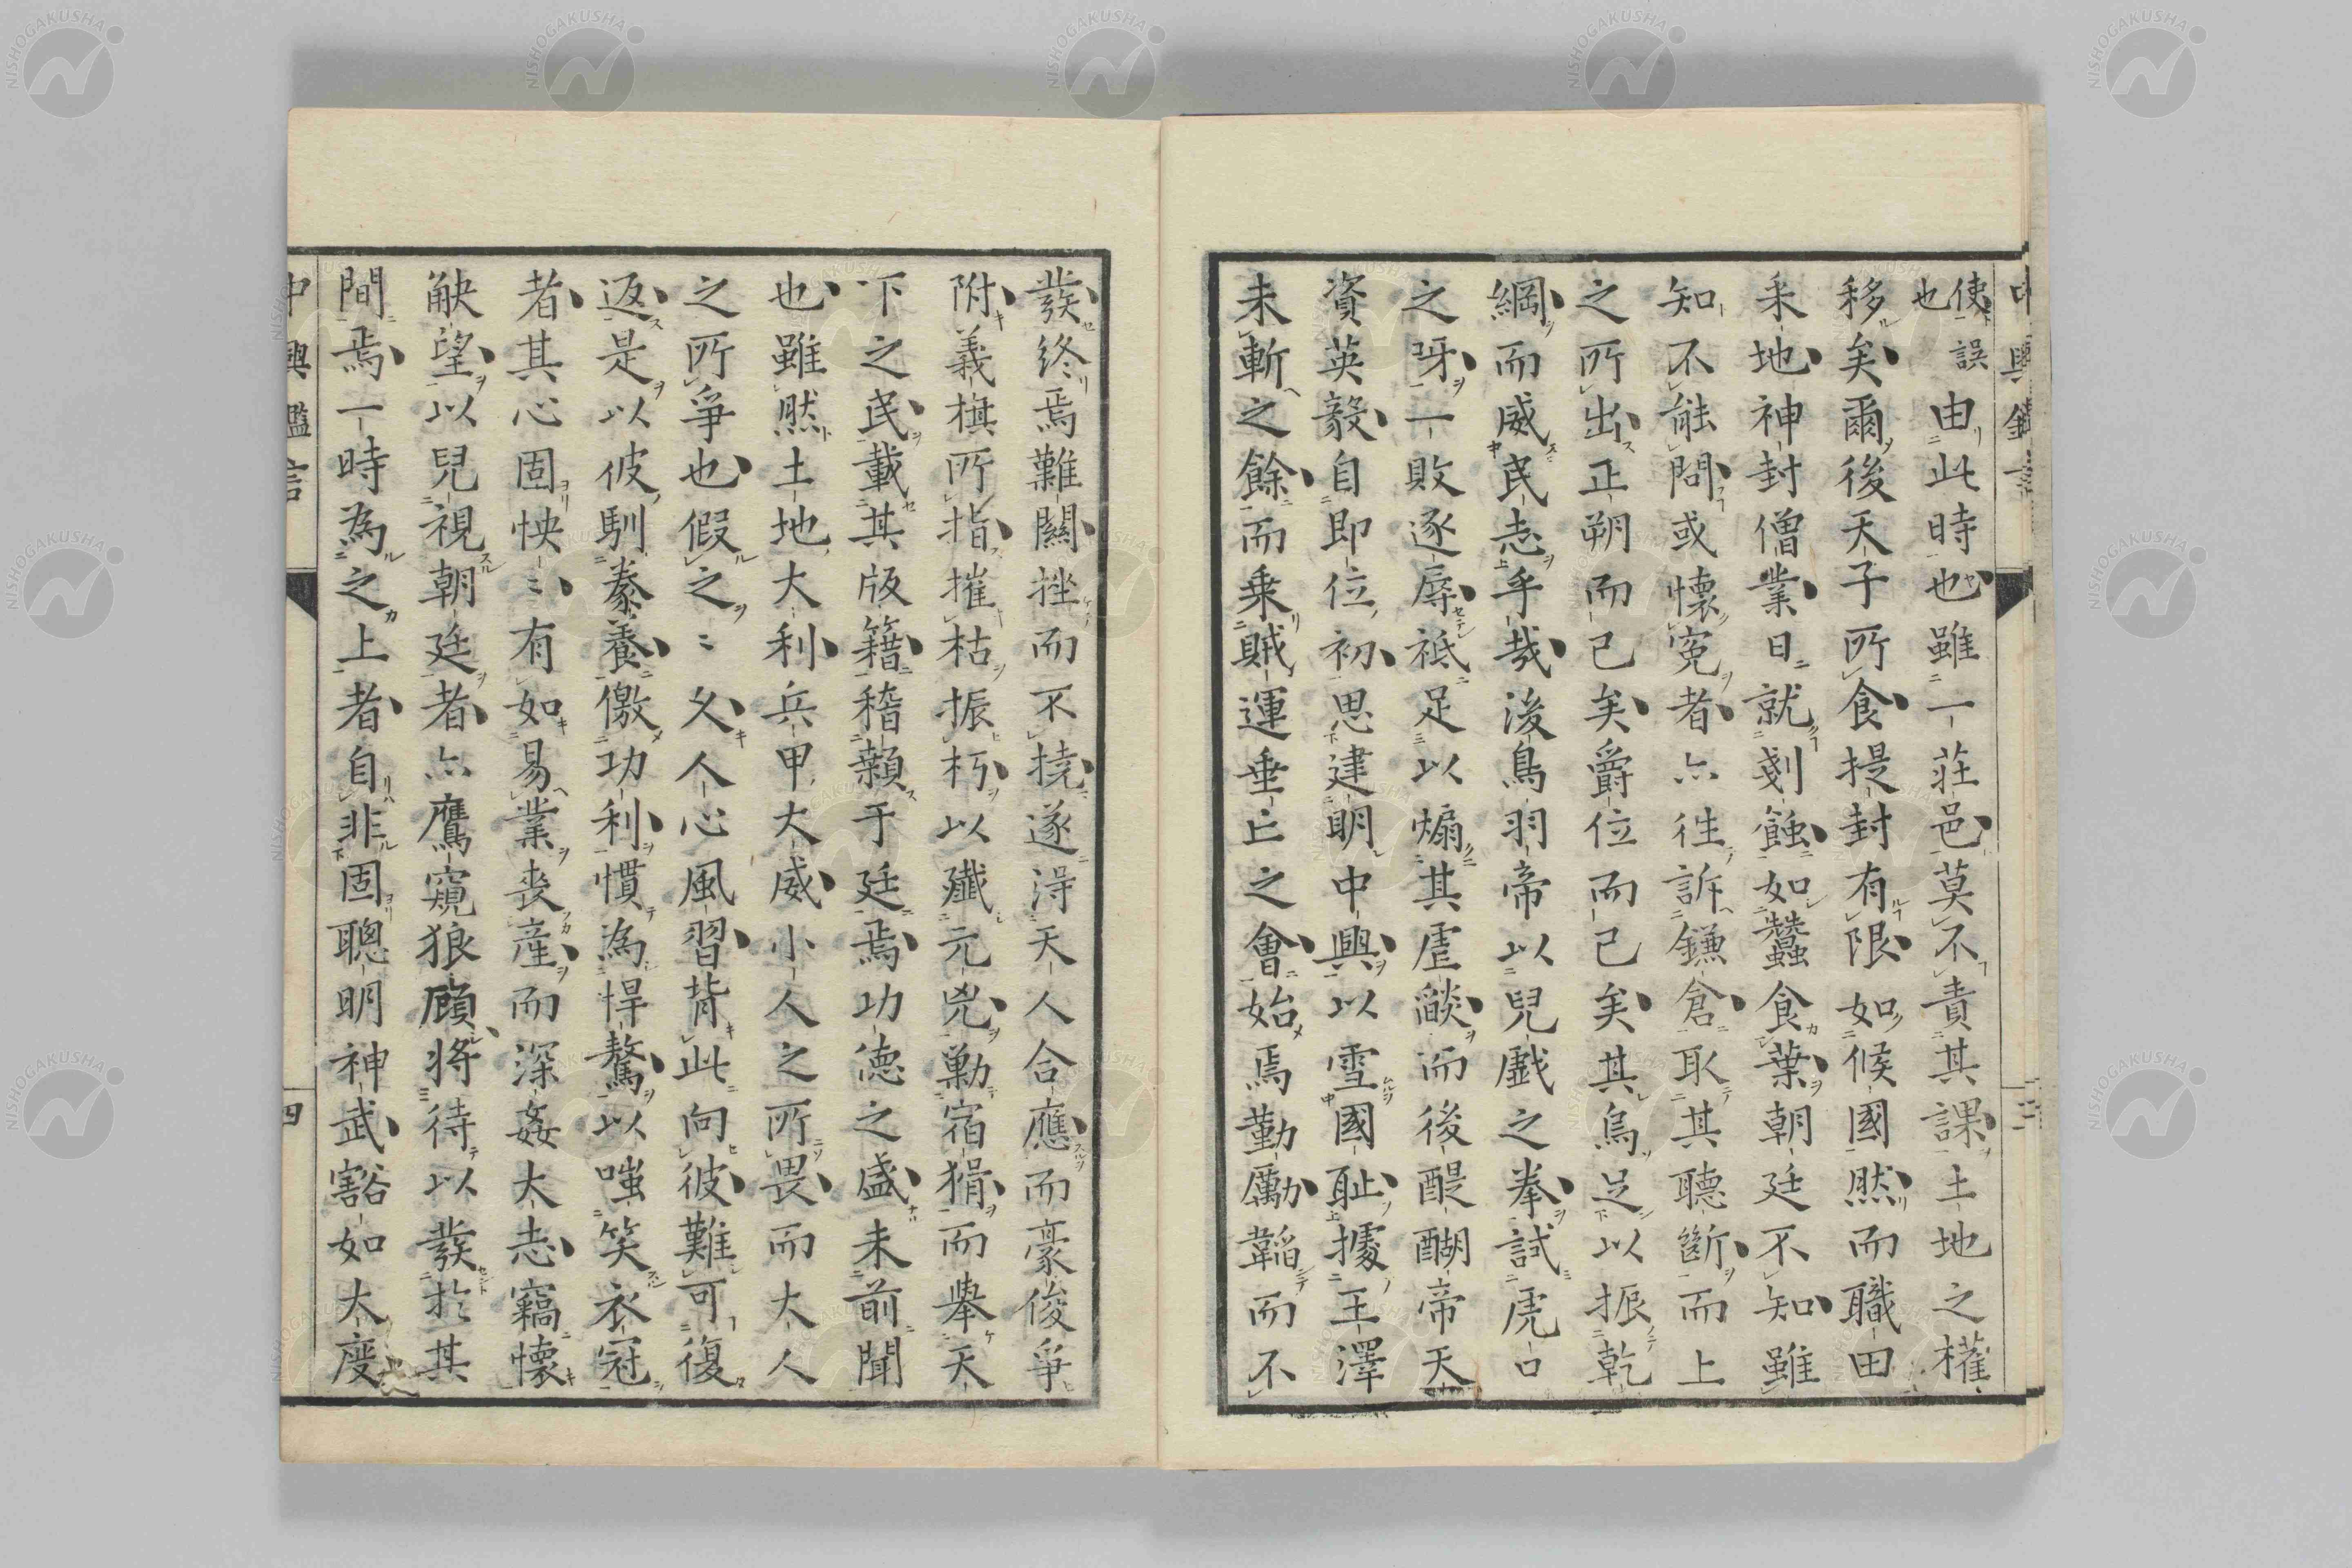 中興鑑言
三
使誤
也
由此時也雖一莊邑莫不責其課土地之權
移矣爾後天子所食提封有限如候國然而職田
釆地神封僧業日就剗蝕如蠶食葉朝廷不知雖
知不能問或懷寃者亦徃訴鎌倉取其聽斷而上
之所出正朔而已矣爵位而已矣其烏足以振乾
綱而威民志乎哉後鳥羽帝以兒戲之拳試虎口
之呀一敗逐辱祗足以煽其虐燄而後醍醐帝天
資英毅自即位初思建明中興以雪國耻據王澤
未斬之餘而乗賊運垂亡之會始焉勤勵韜而不
發終焉難關挫而不撓遂得天人合應而豪俊爭
附義旗所指摧枯振朽以殱元兇勦宿猾而擧天
下之民載其版籍稽顙于廷焉功德之盛未前聞
也雖然土地大利兵甲大威小人之所畏而大人
之所爭也假之〻久人心風習背此向彼難可復
返是以彼馴豢養儌功利慣為悍驁以嗤笑衣冠
者其心固怏〻有如易業喪產而深姦大志竊懷
觖望以兒視朝廷者亦鷹窺狼顧將待以發於其
間焉一時為之上者自非固聰明神武豁如大度
中興鑑言
四
NISHOGAKUSHA